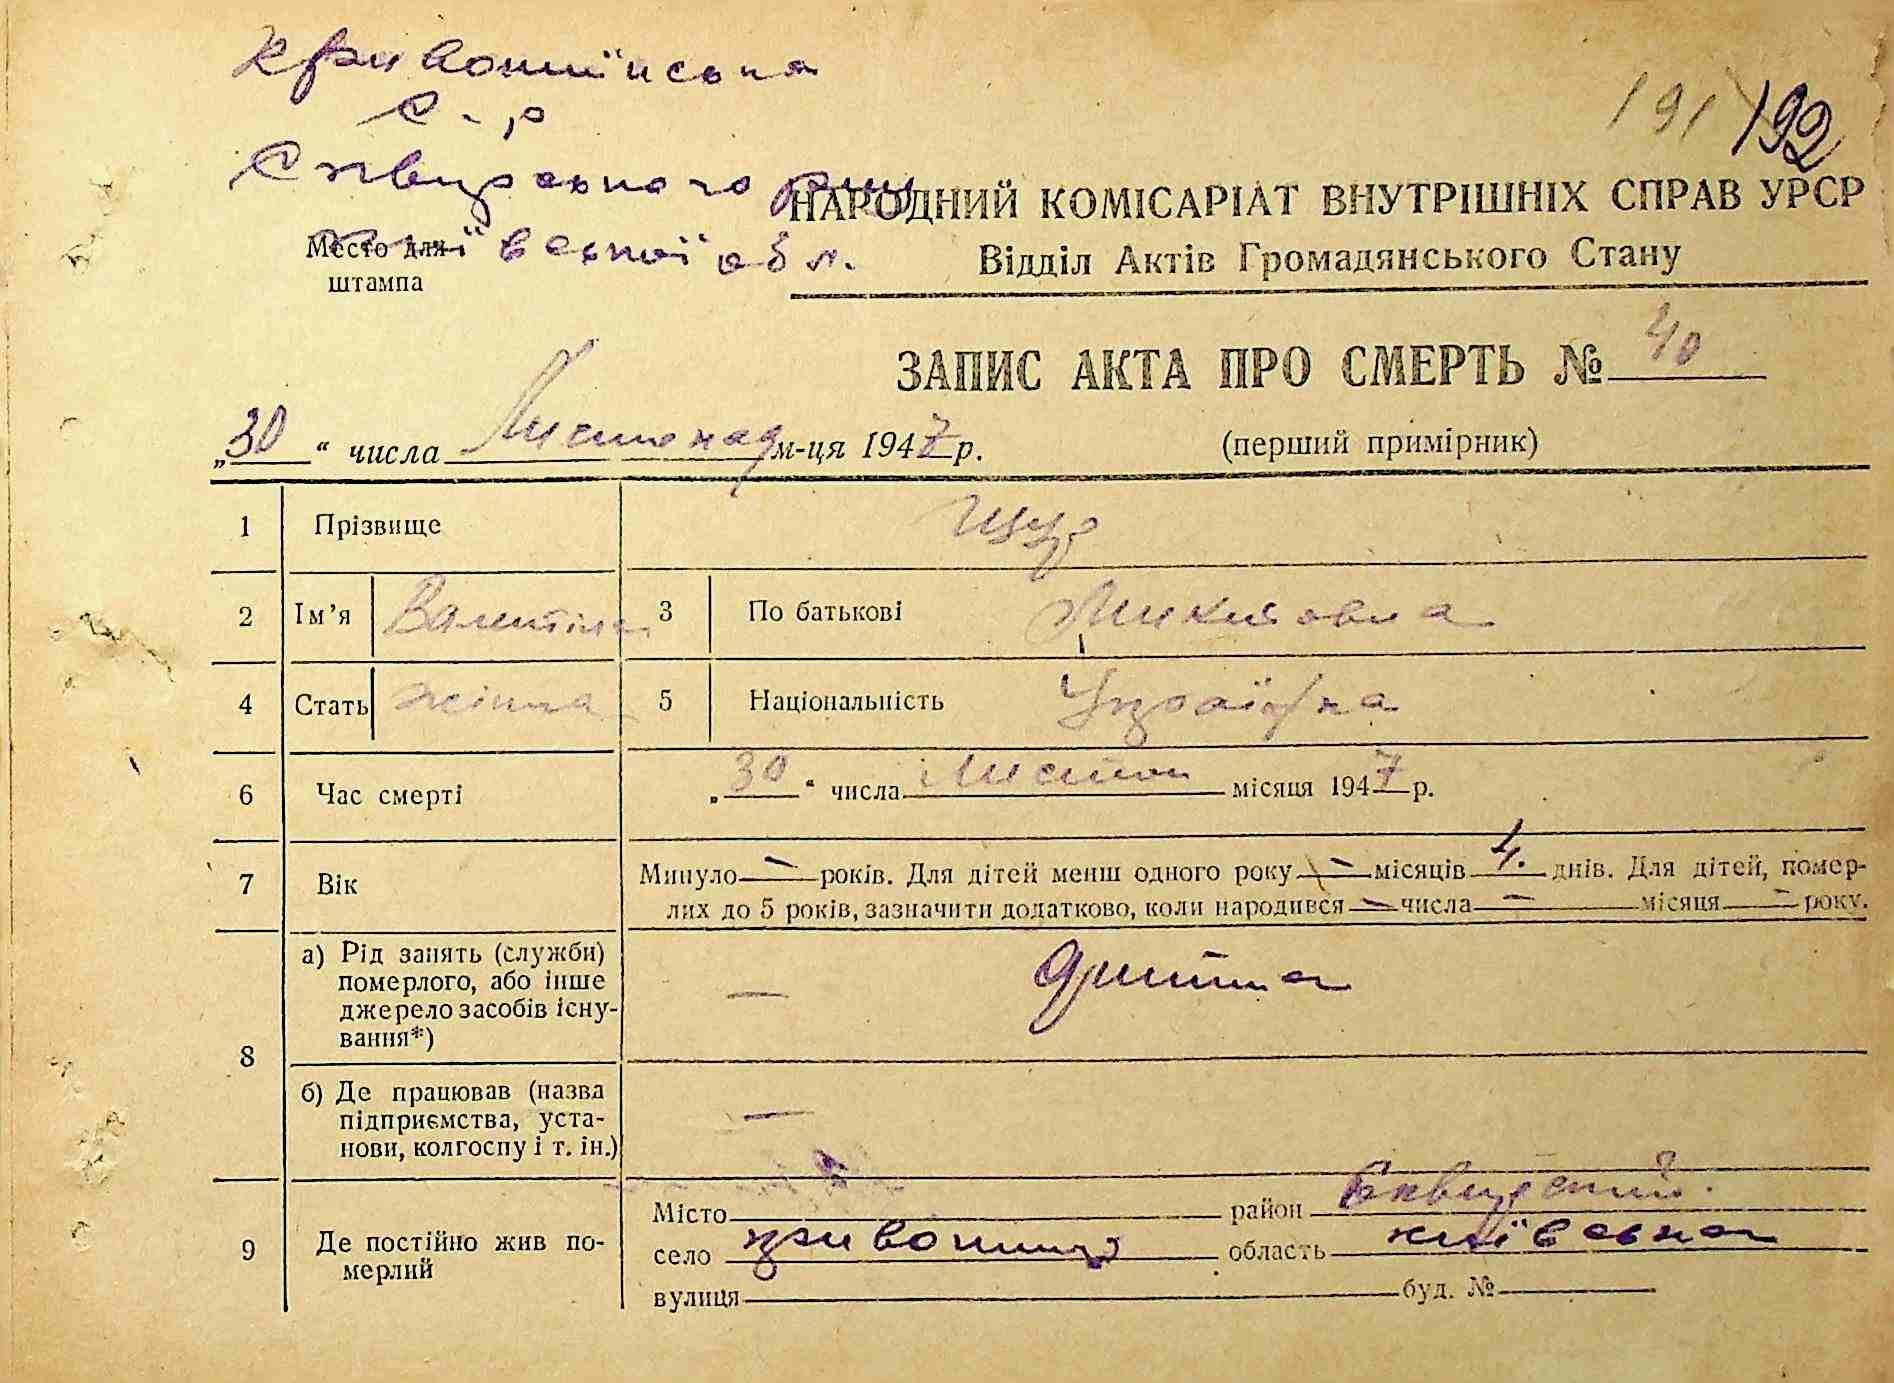 Кривошиїнська
С. р
Сквирського р-ну
Київської обл.
191 192
НАРОДНИЙ КОМІСАРІАТ ВНУТРІШНІХ СПРАВ УРСР
Відділ Актів Громадянського Стану
Место для
штампа
ЗАПИС АКТА ПРО СМЕРТЬ № 40
„30“ числа Листопад м-ця 1947 р.
(перший примірник)
1 Прізвище Щур
2 Ім’я Валентіна 3 По батькові Микитовна
4 Стать жінка 5 Національність Українка
6 Час смерті „30“ числа Листоп місяця 1947 р.
7 Вік Минуло — років. Для дітей менш одного року — місяців 4. днів. Для дітей, помер-
лих до 5 років, зазначити додатково, коли народився — числа — місяця — року.
8 а) Рід занять (служби)
померлого, або інше
джерело засобів існу-
вання*)
— дитина
б) Де працював (назва
підприємства, уста-
нови, колгоспу і т. ін.)
—
9 Де постійно жив по-
мерлий
Місто район Сквирський.
село Кривошиї область Київська
вулиця буд. №